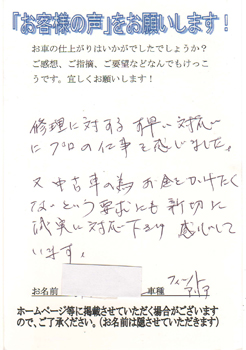 「お客様の声」をお願いします！
お車の仕上がりはいかがでしたでしょうか？
ご感想、ご指摘、ご要望などなんでもけっこ
うです。宜しくお願いします！
修理に対する 早い対応
にプロの仕事を感じました。
又 中古車の為 お金をかけたく
ないという要求にも親切に
誠実に対応下さり 感心して
います。
お名前 車種 フィット
アリア
ホームページ等に掲載させていただく場合がございます
ので、ご了承ください。（お名前は隠させていただきます）